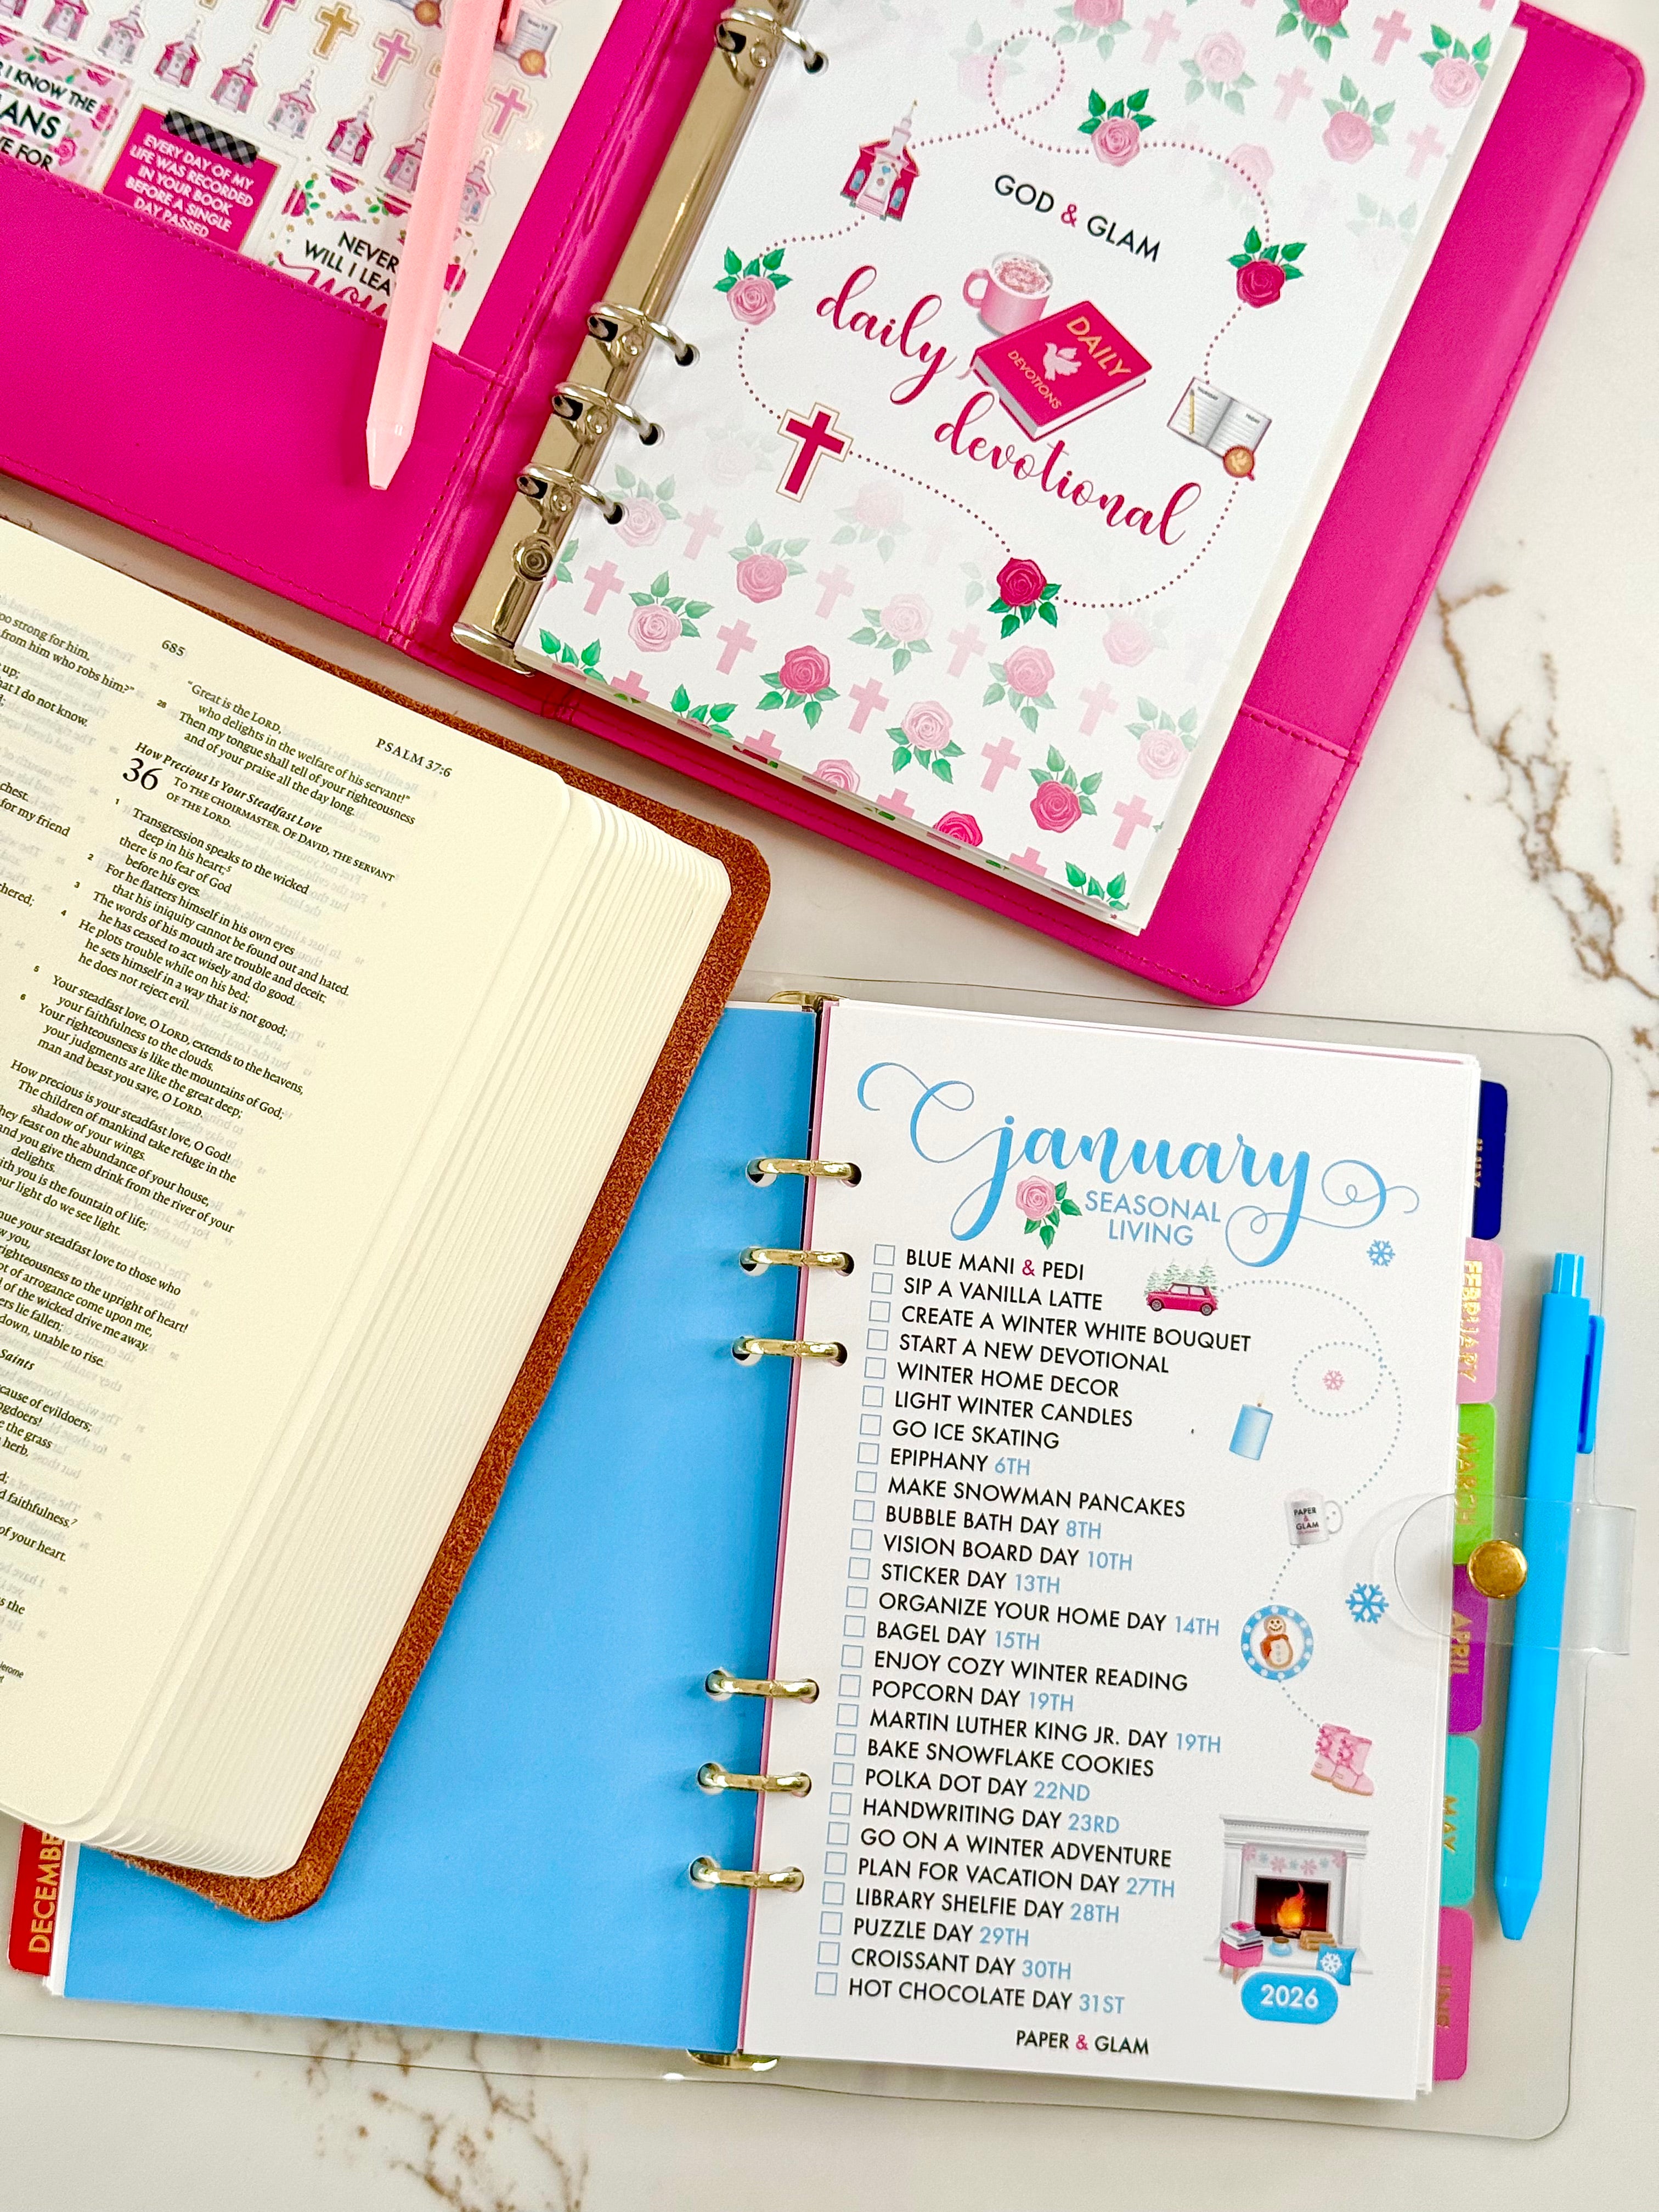 I KNOW THE
EVERY DAY OF MY
LIFE WAS RECORDED
IN YOUR BOOK
BEFORE A SINGLE
DAY PASSED
NEVER
WILL I
you
GOD & GLAM
daily
DAILY
DEVOTIONS
devotional
685
PSALM 37:6
strong for him,
from him who robs him?"
up;
I do not know.
chest.
for my friend
"Great is the LORD,
who delights in the welfare of his servant!"
28 Then my tongue shall tell of your righteousness
and of your praise all the day long.
How Precious Is Your Steadfast Love
36 TO THE CHOIRMASTER. OF DAVID, THE SERVANT
OF THE LORD.
1 Transgression speaks to the wicked
deep in his heart;
there is no fear of God
before his eyes.
2 For he flatters himself in his own eyes
that his iniquity cannot be found out and hated.
3 The words of his mouth are trouble and deceit;
he has ceased to act wisely and do good.
4 He plots trouble while on his bed;
he sets himself in a way that is not good;
he does not reject evil.
5 Your steadfast love, O LORD, extends to the heavens,
your faithfulness to the clouds.
6 Your righteousness is like the mountains of God;
your judgments are like the great deep;
man and beast you save, O LORD.
How precious is your steadfast love, O God!
The children of mankind take refuge in the
shadow of your wings.
They feast on the abundance of your house,
and you give them drink from the river of your
delights.
with you is the fountain of life;
your light do we see light.
your steadfast love to those who
you,
righteousness to the upright of heart!
of arrogance come upon me,
of the wicked drive me away.
lie fallen;
down, unable to rise.
Saints
because of evildoers;
the grass
herb.
faithfulness.
of your heart.
as the
january
SEASONAL
LIVING
BLUE MANI & PEDI
SIP A VANILLA LATTE
CREATE A WINTER WHITE BOUQUET
START A NEW DEVOTIONAL
WINTER HOME DECOR
LIGHT WINTER CANDLES
GO ICE SKATING
EPIPHANY 6TH
MAKE SNOWMAN PANCAKES
BUBBLE BATH DAY 8TH
VISION BOARD DAY 10TH
STICKER DAY 13TH
ORGANIZE YOUR HOME DAY 14TH
BAGEL DAY 15TH
ENJOY COZY WINTER READING
POPCORN DAY 19TH
MARTIN LUTHER KING JR. DAY 19TH
BAKE SNOWFLAKE COOKIES
POLKA DOT DAY 22ND
HANDWRITING DAY 23RD
GO ON A WINTER ADVENTURE
PLAN FOR VACATION DAY 27TH
LIBRARY SHELFIE DAY 28TH
PUZZLE DAY 29TH
CROISSANT DAY 30TH
HOT CHOCOLATE DAY 31ST
PAPER
&
GLAM
2026
PAPER & GLAM
JULY
FEBRUARY
MARCH
APRIL
MAY
JUNE
DECEMBE